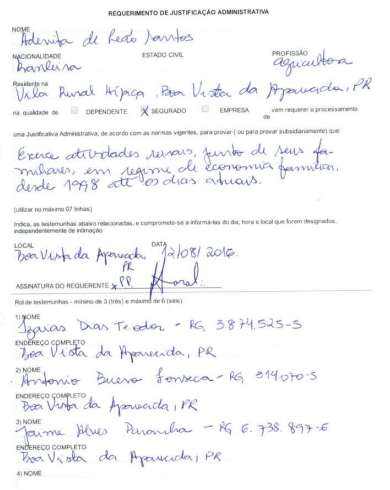 REQUERIMENTO DE JUSTIFICAÇÃO ADMINISTRATIVA
NOME
Adenita de Leão Santos
NACIONALIDADE ESTADO CIVIL PROFISSÃO
Brasileira agricultora
Residente na
Vila Rural Hípica, Boa Vista da Aparecida, PR
na qualidade de DEPENDENTE X SEGURADO EMPRESA vem requerer o processamento de
uma Justificativa Administrativa, de acordo com as normas vigentes, para provar ( ou para provar subsidiariamente) que:
Exerce atividades rurais, junto de seus fa-
miliares, em regime de economia familiar,
desde 1998 até os dias atuais.
(utilizar no máximo 07 linhas)
Indica, as testemunhas abaixo relacionadas, e compromete-se a informá-las do dia, hora e local que forem designados,
independentemente de intimação
LOCAL DATA
Boa Vista da Aparecida 12/08/2016.
PR
ASSINATURA DO REQUERENTE x PP.
Rol de testemunhas - mínimo de 3 (três) e máximo de 6 (seis)
1) NOME
Izaias Dias Teodor - RG 3.874.525-5
ENDEREÇO COMPLETO
Boa Vista da Aparecida, PR
2) NOME
Antonio Bueno Fonseca - RG 314070-5
ENDEREÇO COMPLETO
Boa Vista da Aparecida, PR
3) NOME
Jaime Alves Paranha - RG 6.738.897-6
ENDEREÇO COMPLETO
Boa Vista da Aparecida, PR
4) NOME